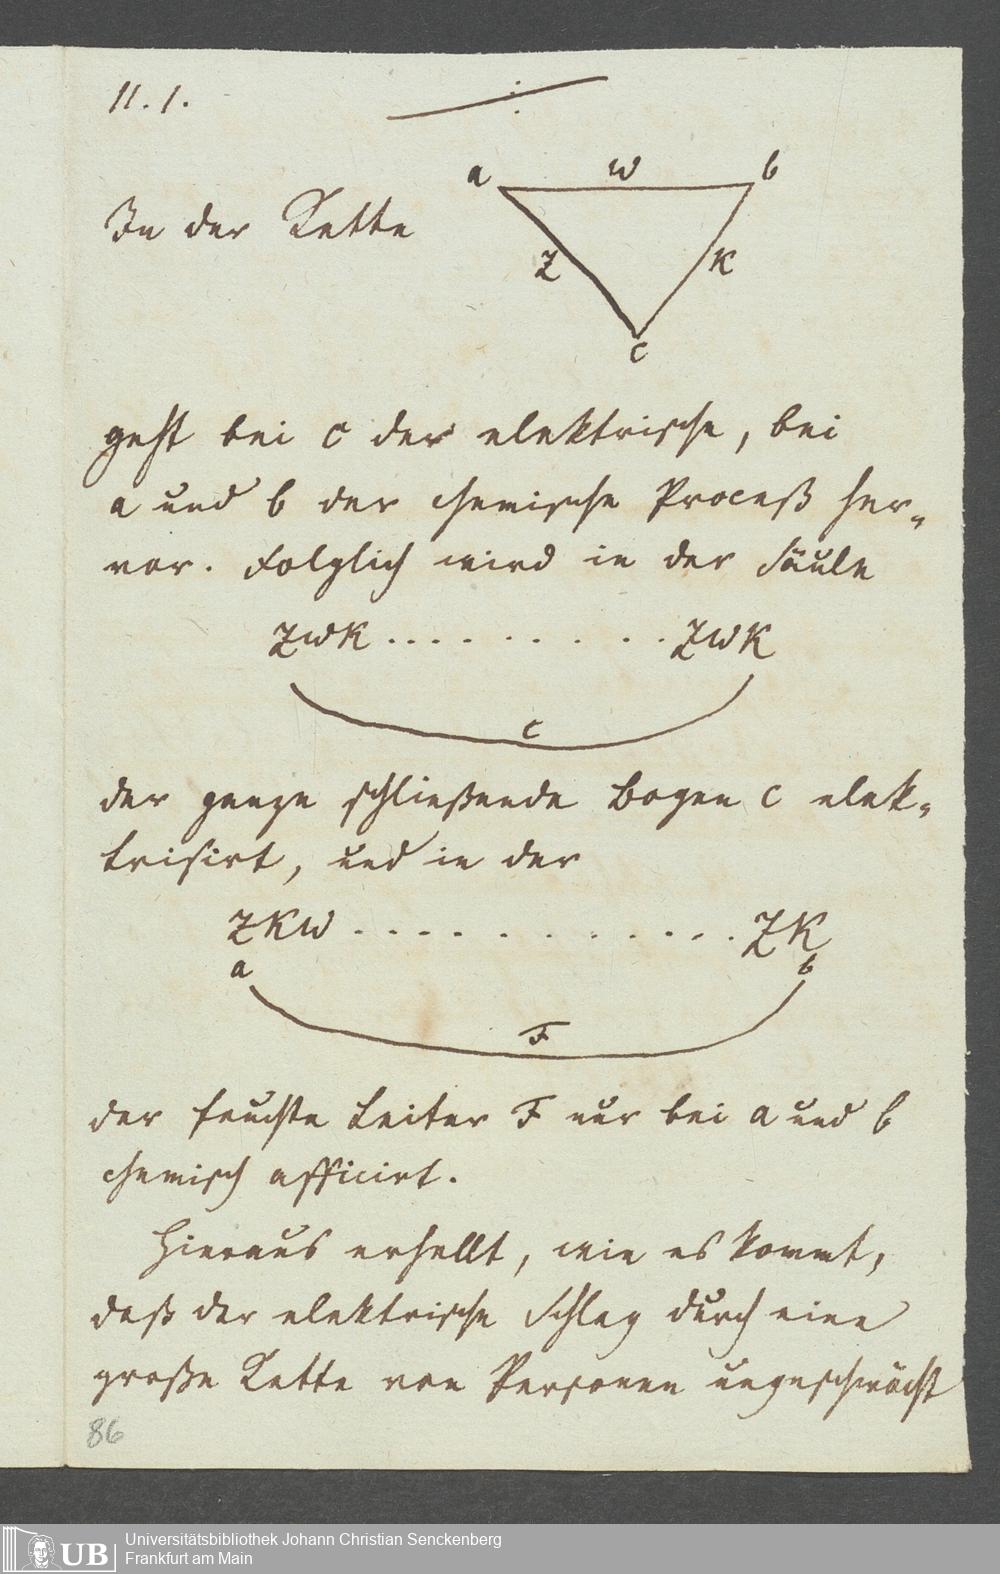 11. 1.
a w b
In der Kette
Z K
c
geht bei c der elektrische, bei
a und b der chemische Proceß her-
vor. Folglich wird in der Säule
ZWK . . . . . . . . . ZWK
c
der ganze schließende Bogen c elek-
trisirt, und in der
ZKW . . . . . . . . . . . . ZK
a b
F
der feuchte Leiter F nur bei a und b
chemisch afficirt.
Hieraus erhellt, wie es kommt,
daß der elektrische Schlag durch eine
große Kette von Personen ungeschwächt
86
UB
Universitätsbibliothek Johann Christian Senckenberg
Frankfurt am Main